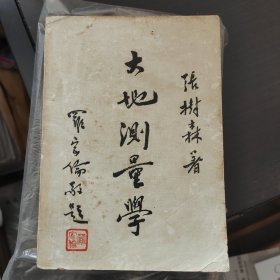 張樹森著
大地測量學
羅家倫敬題